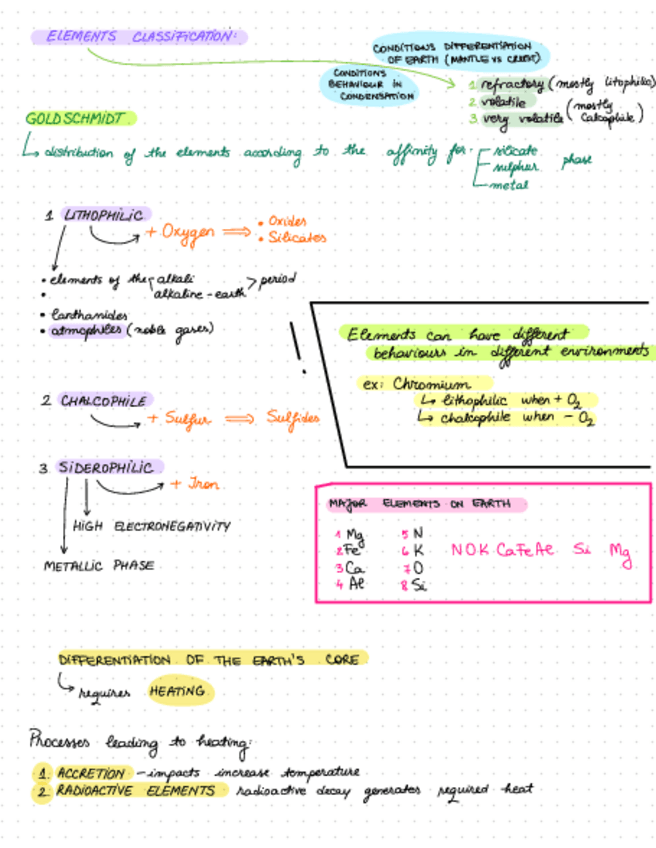 ELEMENTS CLASSIFICATION:
CONDITIONS DIFFERENTIATION
OF EARTH (MANTLE VS CRUST)
CONDITIONS
BEHAVIOUR IN
CONDENSATION
1 refractory (mostly litophile)
2 volatile
3. very volatile (mostly Calcophile)
GOLDSCHMIDT.
↳ distribution of the elements according to the affinity for: silicate
sulphur phase
metal
1 LITHOPHILIC
+ Oxygen ⟹ • Oxides
• Silicates
• elements of the alkali > period
• alkaline-earth
• lanthanides
• atmophiles (noble gases)
!
Elements can have different
behaviours in different environments
ex: Chromium
↳ lithophilic when + O2
↳ chalcophile when - O2
2 CHALCOPHILE
+ Sulfur ⟹ Sulfides
3 SIDEROPHILIC
+ Iron
HIGH ELECTRONEGATIVITY
METALLIC PHASE
MAJOR ELEMENTS ON EARTH
1 Mg 5 N
2 Fe 6 K NOK CaFeAl Si Mg
3 Ca 7 O
4 Al 8 Si
DIFFERENTIATION OF THE EARTH'S CORE
↳ requires HEATING
Processes leading to heating:
1. ACCRETION - impacts increase temperature
2 RADIOACTIVE ELEMENTS radioactive decay generates required heat